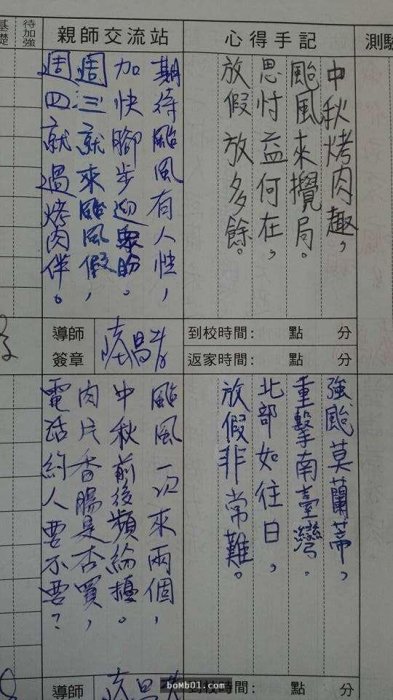 測驗
心得手記
親師交流站
待加強
基礎
中秋烤肉趣，
颱風來攪局。
思忖益何在，
放假放多餘。
期待颱風有人性，
加快腳步迎眾盼。
週三就來颱風假，
週四就過烤肉伴。
到校時間： 點 分
返家時間： 點 分
導師
簽章
強颱莫蘭蒂，
重擊南臺灣。
北部如往日，
放假非常難。
颱風一次來兩個，
中秋前後頻紛擾。
肉片香腸是否買，
電話約人要不要？
到校時間： 點 分
導師
bomb01.com